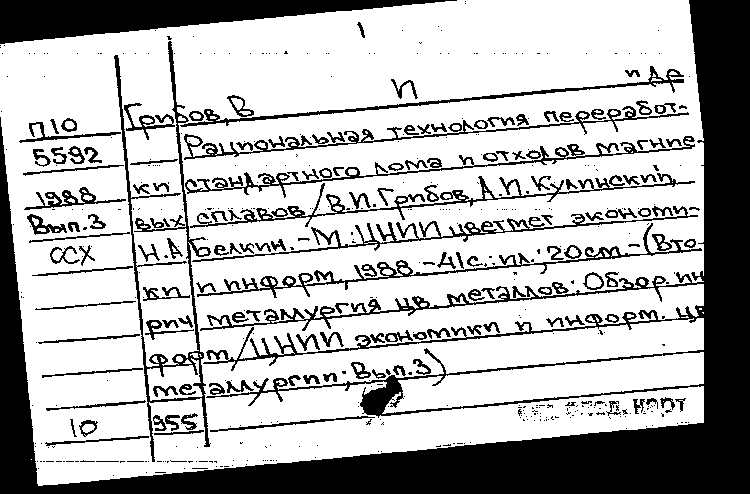 1
И
П10 Грибов, В и др
5592 Рациональная технология переработ-
1988 ки стандартного лома и отходов магние-
Вып.3 вых сплавов / В.И. Грибов, А.И. Кулинский,
ССХ Н.А. Белкин. - М.: ЦНИИ цветмет экономи-
ки и информ., 1988. - 41с.: ил.; 20см. - (Вто-
рич металлургия цв. металлов: Обзор. ин
форм. / ЦНИИ экономики и информ. цв
металлургии; Вып.3)
10 955